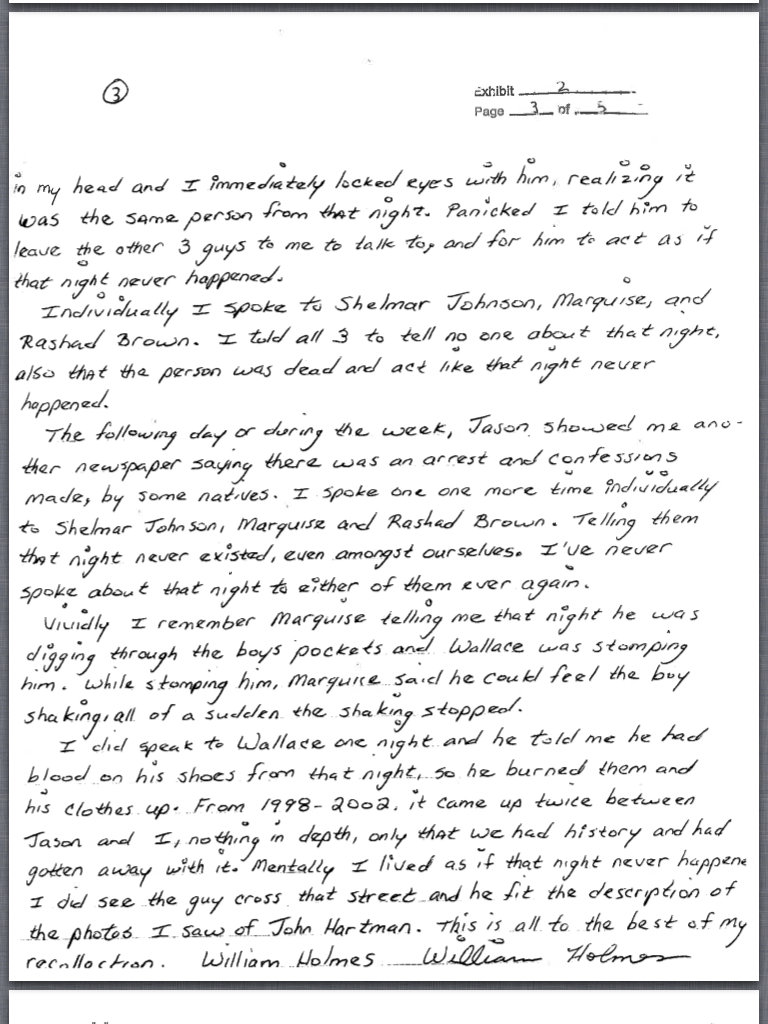 3
Exhibit 2
Page 3 of 5
in my head and I immediately locked eyes with him, realizing it
was the same person from that night. Panicked I told him to
leave the other 3 guys to me to talk to, and for him to act as if
that night never happened.
Individually I spoke to Shelmar Johnson, Marquise, and
Rashad Brown. I told all 3 to tell no one about that night,
also that the person was dead and act like that night never
happened.
The following day or during the week, Jason showed me ano-
ther newspaper saying there was an arrest and confessions
made, by some natives. I spoke one one more time individually
to Shelmar Johnson, Marquise and Rashad Brown. Telling them
that night never existed, even amongst ourselves. I've never
spoke about that night to either of them ever again.
Vividly I remember Marquise telling me that night he was
digging through the boys pockets and Wallace was stomping
him. While stomping him, Marquise said he could feel the boy
shaking, all of a sudden the shaking stopped.
I did speak to Wallace one night and he told me he had
blood on his shoes from that night, so he burned them and
his clothes up. From 1998-2002, it came up twice between
Jason and I, nothing in depth, only that we had history and had
gotten away with it. Mentally I lived as if that night never happene
I did see the guy cross that street and he fit the description of
the photos I saw of John Hartman. This is all to the best of my
recollection. William Holmes William Holmes